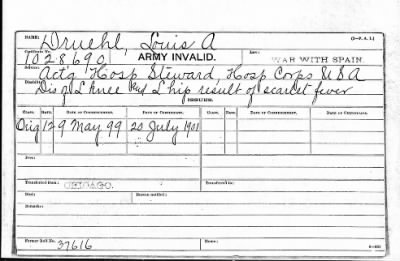 NAME: Druehl, Louis A (3—P. A. I.)
Certificate No. 1028690 ARMY INVALID. Law: WAR WITH SPAIN.
Service: Act'g Hosp Steward, Hosp Corps U S A
Disability: Dis of L knee and L hip result of scarlet fever
ISSUES.
CLASS. RATE. DATE OF COMMENCEMENT. DATE OF CERTIFICATE. CLASS. RATE. DATE OF COMMENCEMENT. DATE OF CERTIFICATE.
Orig 12 9 May 99 20 July 1901
Fees:
Transferred from CHICAGO.
Died: Bureau notified:
Remarks:
Former Roll No. 37616 Home: